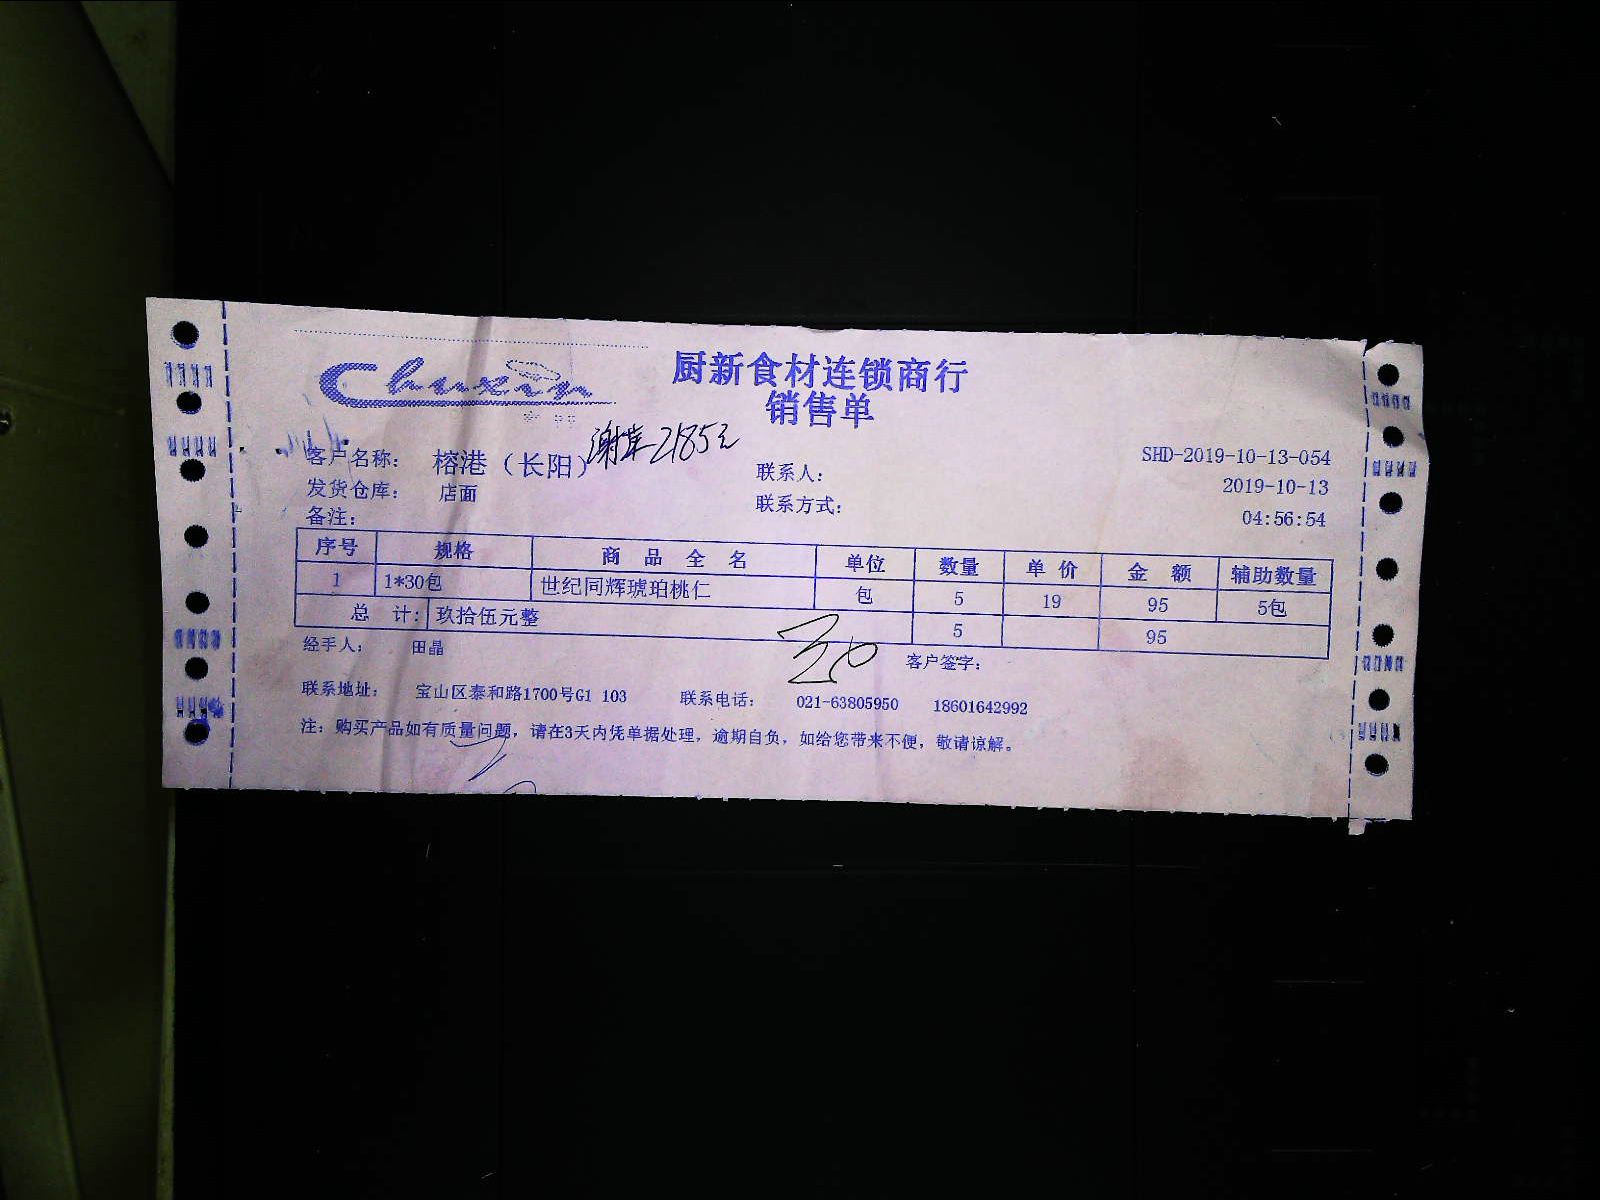 Chuxin
厨新食材连锁商行
销售单
客户名称： 榕港（长阳） 2185元
联系人：
SHD-2019-10-13-054
发货仓库： 店面
联系方式：
2019-10-13
备注：
04:56:54
序号 规格 商品全名 单位 数量 单价 金额 辅助数量
1 1*30包 世纪同辉琥珀桃仁 包 5 19 95 5包
总 计: 玖拾伍元整 5 95
经手人： 田晶 客户签字：
联系地址： 宝山区泰和路1700号G1 103 联系电话： 021-63805950 18601642992
注：购买产品如有质量问题，请在3天内凭单据处理，逾期自负，如给您带来不便，敬请谅解。